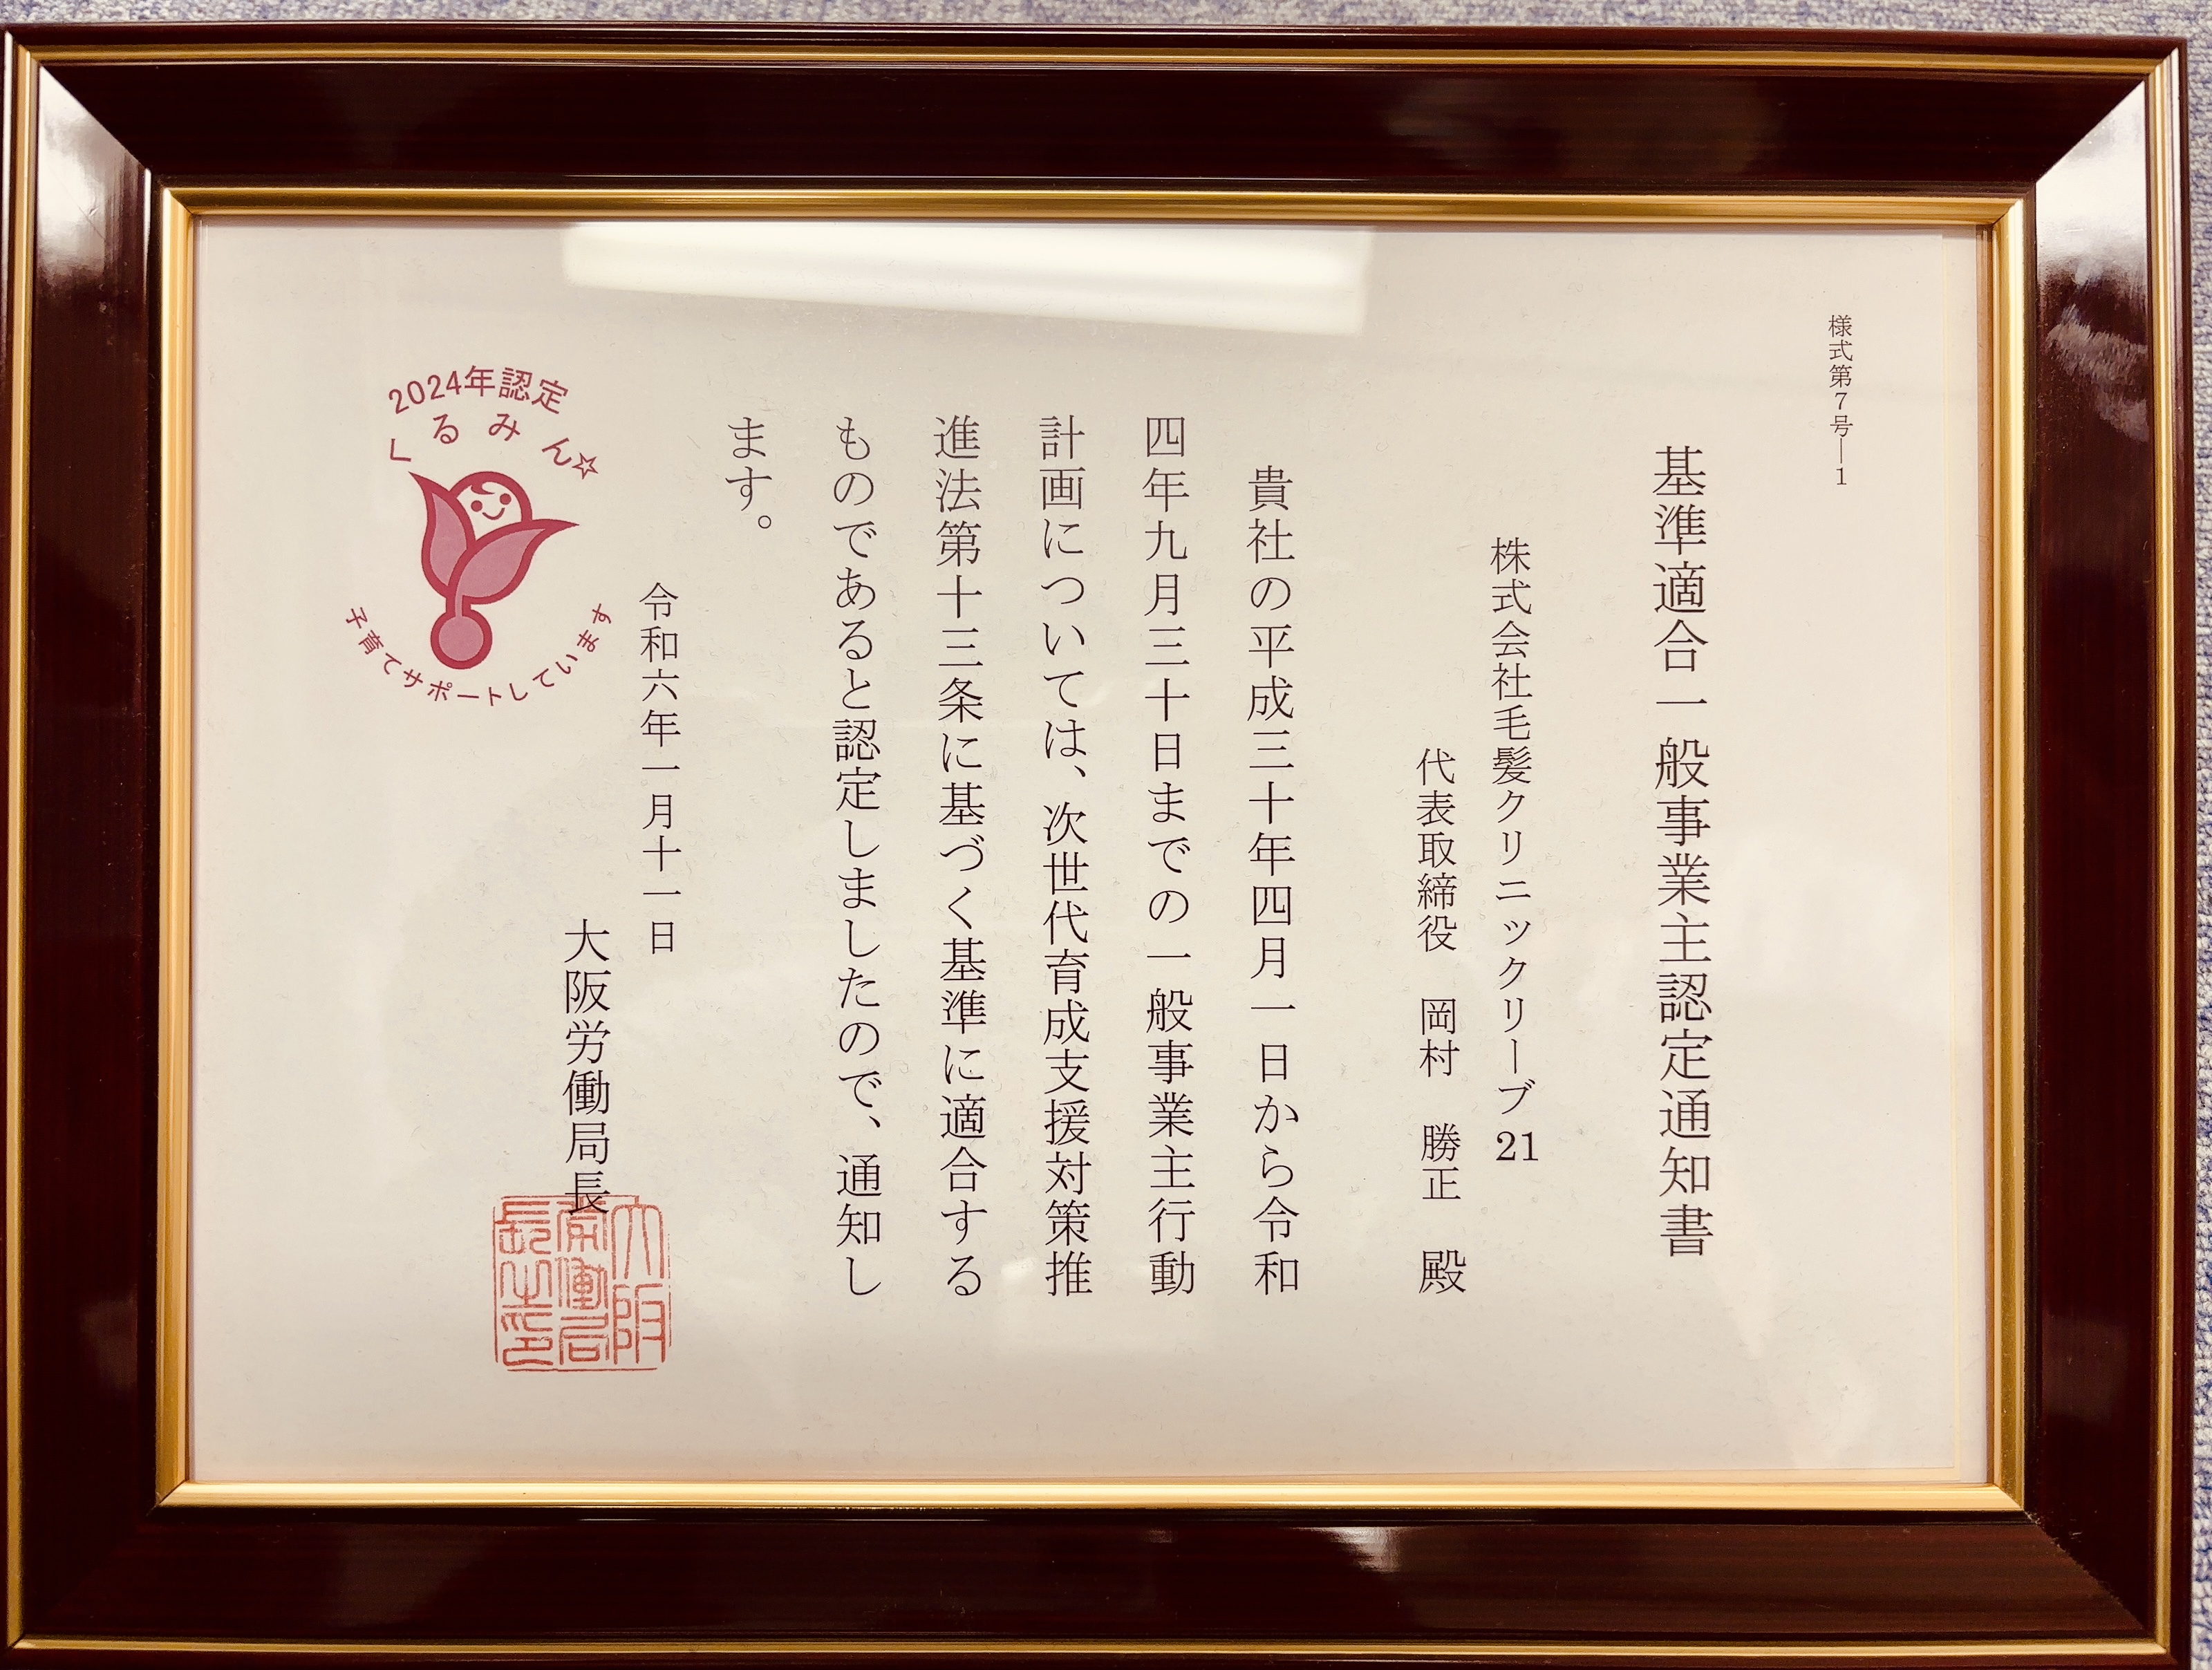 様式第7号―1
基準適合一般事業主認定通知書
株式会社毛髪クリニックリーブ21
代表取締役 岡村 勝正 殿
貴社の平成三十年四月一日から令和
四年九月三十日までの一般事業主行動
計画については、次世代育成支援対策推
進法第十三条に基づく基準に適合する
ものであると認定しましたので、通知し
ます。
令和六年一月十一日
大阪労働局長
大阪
労働局
長之印
2024年認定
くるみん☆
子育てサポートしています